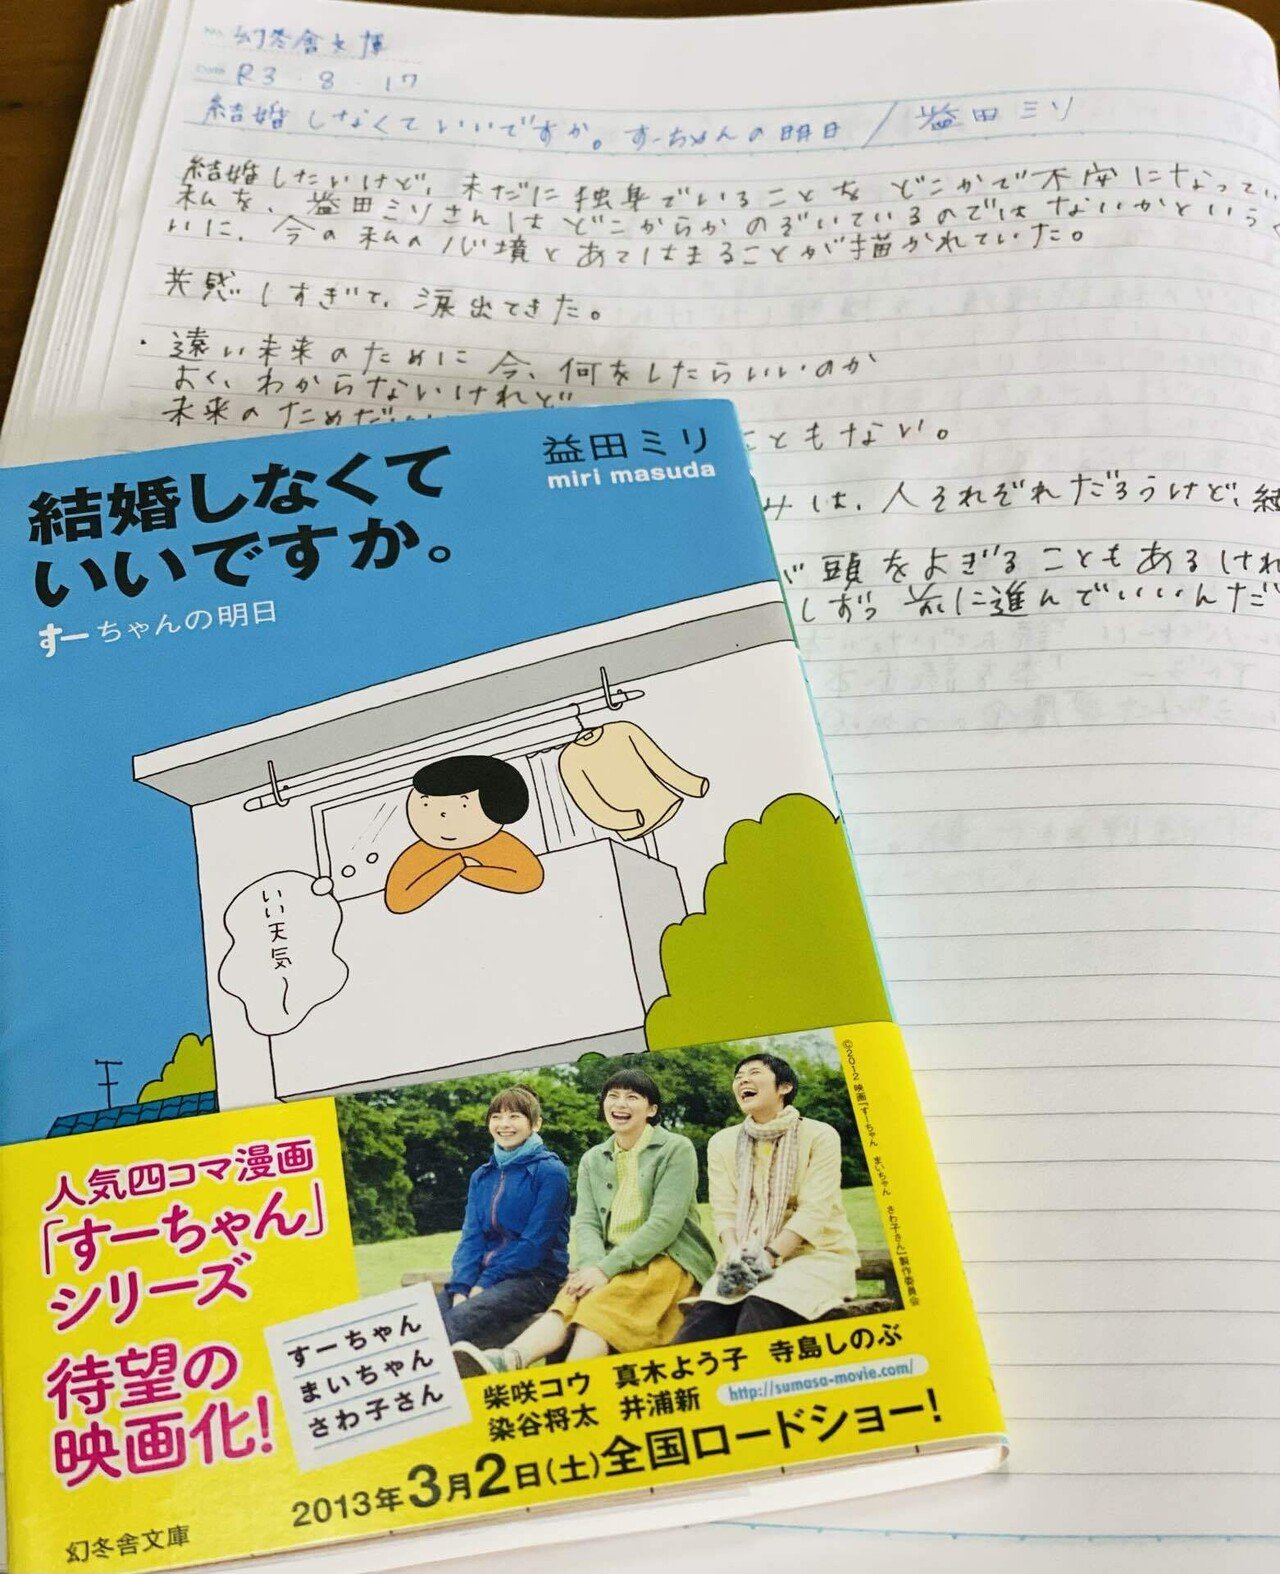 No. 幻冬舎文庫
Date R3・8・17
結婚しなくていいですか。すーちゃんの明日 / 益田ミリ
結婚したいけど、未だに独身でいることを どこかで不安になってい
私を、益田ミリさんはどこからかのぞいているのではないかという
いに、今の私の心境とあてはまることが描かれていた。
共感しすぎて、涙出てきた。
・遠い未来のために今、何をしたらいいのか
よく、わからないけれど
未来のためだ
こともない。
みは、人それぞれだろうけど、結
頭をよぎることもあるけれ
しずつ 前に進んでいいんだ
結婚しなくて
いいですか。
すーちゃんの明日
益田ミリ
miri masuda
いい天気〜
人気四コマ漫画
「すーちゃん」
シリーズ
待望の
映画化!
すーちゃん
まいちゃん
さわ子さん
©2012 映画『すーちゃん まいちゃん さわ子さん』製作委員会
柴咲コウ 真木よう子 寺島しのぶ
染谷将太 井浦新 http://sumasa-movie.com/
2013年3月2日(土)全国ロードショー!
幻冬舎文庫